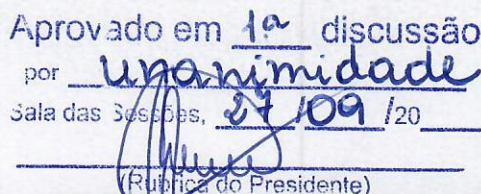 Aprovado em 1ª discussão
por unanimidade
Sala das Sessões, 27/09/20
(Rubrica do Presidente)